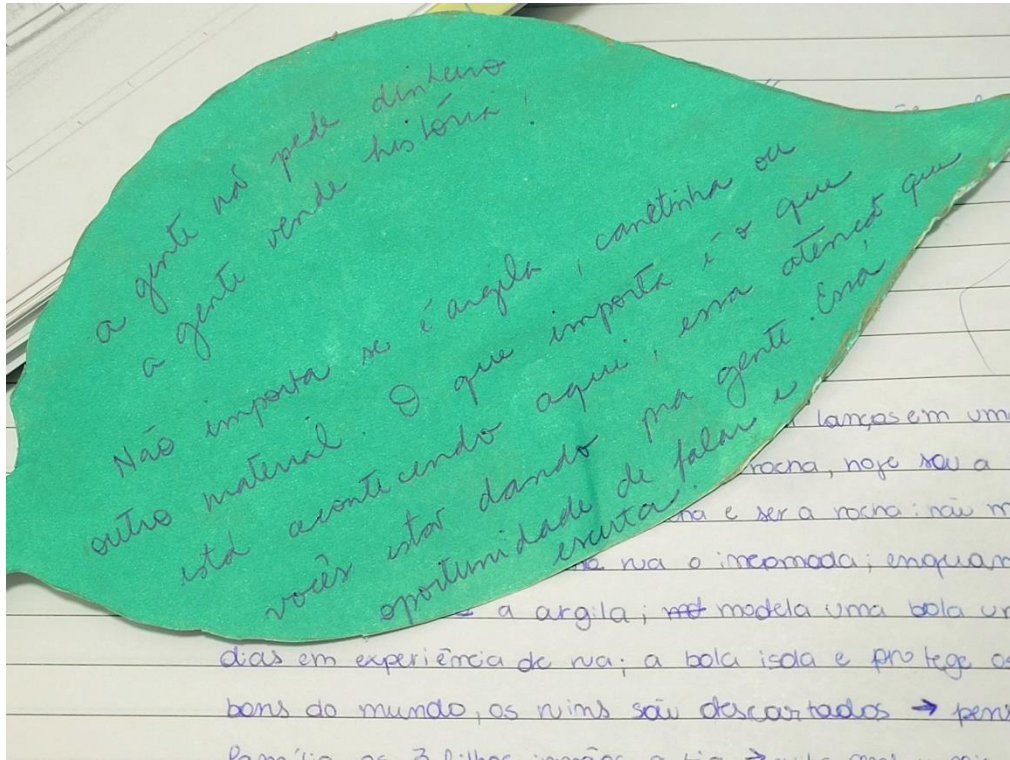 a gente não pede dinheiro
a gente vende história!
Não importa se é argila, canetinha ou
outro material. O que importa é o que
está acontecendo aqui, essa atenção que
vocês estão dando pra gente. Essa
oportunidade de falar e
escuta.
lanças em uma
rocha, hoje sou a
e ser a rocha: não m
rua o incomoda; enquan
a argila; modela uma bola um
dias em experiência de rua; a bola isola e protege os
bons do mundo, os ruins são descartados → pens